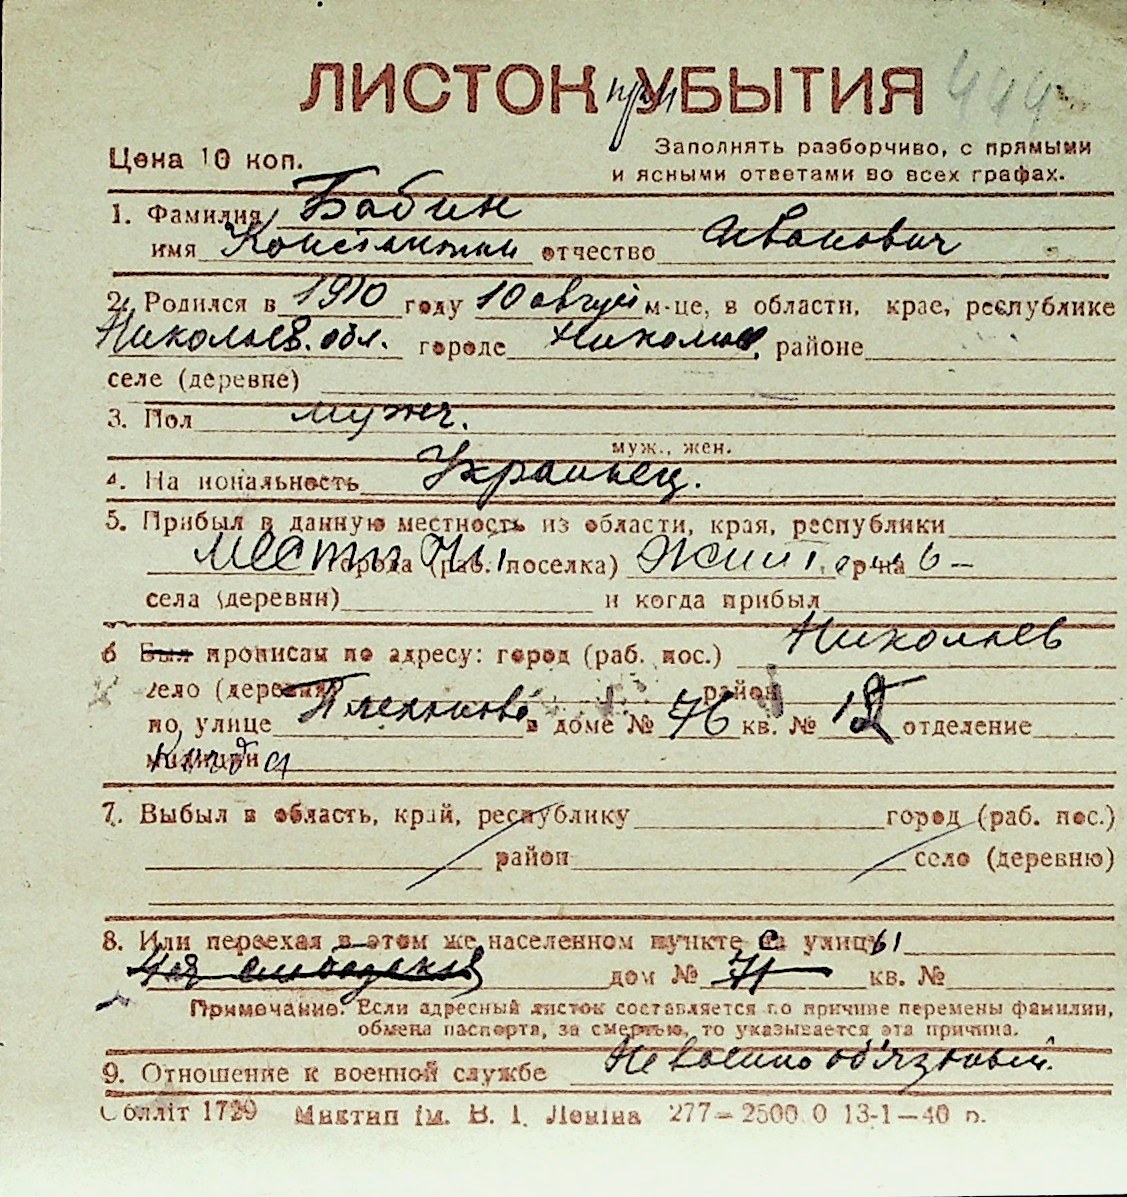 ЛИСТОК при УБЫТИЯ 444
Цена 10 коп.
Заполнять разборчиво, с прямыми
и ясными ответами во всех графах.
1. Фамилия Бабин
имя Константин отчество Иванович
2. Родился в 1910 году 10 август м-це, в области, крае, республике
Николаев. обл. городе Николаев, районе
селе (деревне)
3. Пол мужч.
муж., жен.
4. На иональность Украинец.
5. Прибыл в данную местность из области, края, республики
Местный города (раб. поселка) Житель
села (деревни) и когда прибыл
6 Был прописан по адресу: город (раб. пос.) Николаев
село (деревня) район
по улице Плехнова в доме № 76 кв. № 12 отделение
милиции
7. Выбыл в область, край, республику город (раб. пос.)
район село (деревню)
8. Или переехал в этом же населенном пункте с на улицы
4ая слободская дом № 71 кв. №
Примечание. Если адресный листок составляется по причине перемены фамилии,
обмена паспорта, за смертью, то указывается эта причина.
9. Отношение к военной службе Невоеннообязанный.
Облліт 1729 Миктип ім. В. І. Леніна 277—2500.0 13-1—40 р.